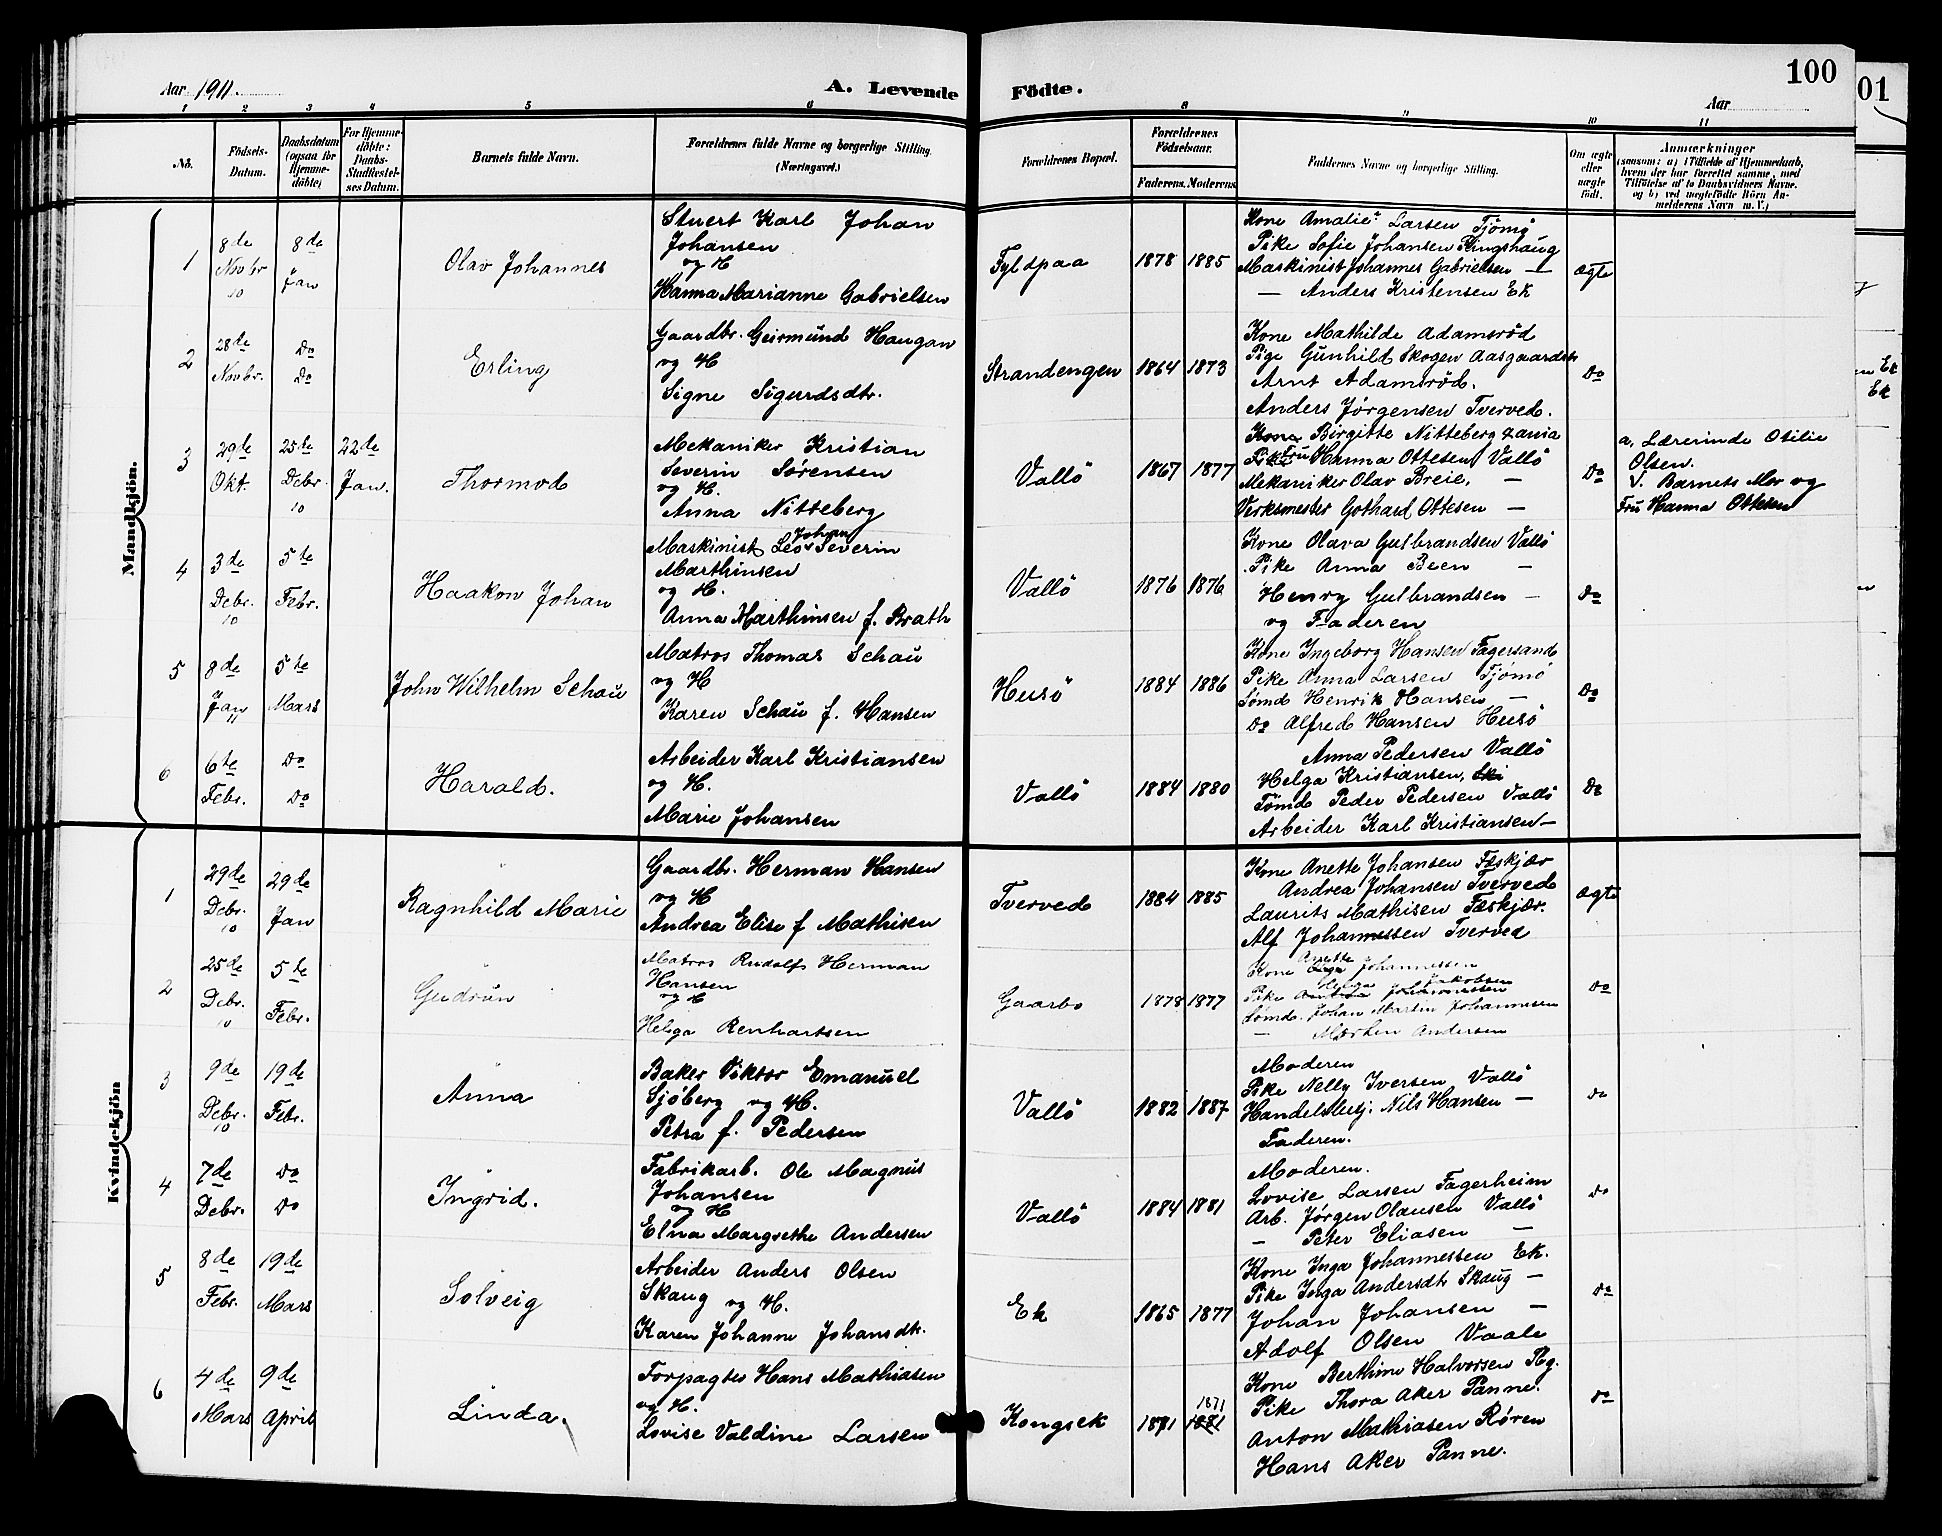 Aar 1911.
A. Levende Födte.
Aar
100
01
1 2 3 4 5 6 8 9 10 11
No.
Födsels-Datum.
Daabsdatum (ogsaa for Hjemme-döbte)
For Hjemme-döbte: Daabs-Stadfæstel-ses Datum.
Barnets fulde Navn.
Forældrenes fulde Navne og borgerlige Stilling. (Næringsvei.)
Forældrenes Bopæl.
Forældrenes Födselsaar.
Faderens. Moderens.
Faddernes Navne og borgerlige Stilling.
Om ægte eller uægte födt.
Anmærkninger
(saasom: a) i Tilfælde af Hjemmedaab,
hvem der har forrettet samme, med
Tilföielse af to Daabsvidners Navne.
og b) ved uægtefödte Börn An-
melderens Navn m. V.)
Mandkjön.
1
8de Novbr 10
8de Jan
Olav Johannes
Stuert Karl Johan
Johansen
og H
Hanna Marianne Gabrielsen
Fyldpaa
1878 1885
Kone Amalie Larsen Tjømø
Pike Sofie Johansen Ringshaug
Maskinist Johannes Gabrielsen —
— Anders Kristensen Ek
ægte
2
28de Novbr.
Do Do
Erling
Gaardbr. Geirmund Haugan
og H
Signe Sigurdsdtr.
Strandengen
1864 1873
Kone Mathilde Adamsrød
Pige Gunhild Skogen Aasgaardstr
Arnt Adamsrød.
Anders Jørgensen Tverved.
Do
3
29de Okt.
25de Debr. 10
22de Jan.
Thormod
Mekaniker Kristian
Severin Sørensen
og H.
Anna Nitteberg
Vallö
1867 1877
Kone Birgitte Nitteberg
Pike Fru Hanna Ottesen Vallö
Mekaniker Olav Breie, —
Verksmester Gothard Ottesen —
Do
a, Lærerinde Otilie
Olsen.
V. Barnets Mor og
Fru Hanna Ottesen
4
3de Debr. 10
5te Febr.
Haakon Johan
Maskinist Leo Johan Severin
Marthinsen
og H.
Anna Marthinsen f. Brath
Vallö
1876 1876
Kone Olava Gulbrandsen Vallö
Pike Anna Been —
Henry Gulbrandsen —
og Faderen
Do
5
8de Jan 11
5te Mars
John Wilhelm Schau
Matros Thomas Schau
og H
Karen Schau f. Hansen
Husö
1884 1886
Kone Ingeborg Hansen Fagersand
Pike Anna Larsen Tjömö
Sömd Henrik Hansen —
Do Alfred Hansen Husö
Do
6
6te Febr.
Do Do
Harald.
Arbeider Karl Kristiansen
og H.
Marie Johansen
Vallö
1884 1880
Anna Pedersen Vallö
Helga Kristiansen, Ski
Tömd Peder Pedersen Vallö
Arbeider Karl Kristiansen —
Do
Kvindekjön
1
29de Debr. 10
29de Jan
Ragnhild Marie
Gaardbr. Herman Hansen
og H
Andrea Elise f Mathisen
Tverved
1884 1885
Kone Anette Johansen Fæskjær
Andrea Johansen Tverved
Laurits Mathisen Fæskjær.
Alf Johannessen Tverved
Ægte
2
25de Debr. 10
5te Febr.
Gudrun
Matros Rudolf Herman
Hansen
og H
Helga Renhartsen
Gaarbo
1878 1877
Kone Anette Johannessen
Pike Helga Jakobsen
Sømd. Johan Martin Johannesen
— Marthin Andersen
Do
3
9de Debr. 10
19de Febr.
Anna
Baker Viktor Emanuel
Sjöberg og H.
Petra f. Pedersen
Vallö
1882 1887
Moderen
Pike Nelly Iversen Vallö
Handelsbetj. Nils Hansen —
Faderen.
Do
4
7de Debr.
Do Do
Ingrid.
Fabrikarb. Ole Magnus
Johansen
og H
Elna Margrethe Andersen
Vallö
1884 1881
Moderen.
Lovise Larsen Fagerheim
Arb. Jørgen Olausen Vallö
— Peter Eliasen —
Do
5
8de Febr.
19de Mars
Solveig
Arbeider Anders Olsen
Skaug og H.
Karen Johanne Johansdtr.
Ek
1865 1877
Kone Inga Johannessen Ek.
Pike Inga Andersdtr Skaug —
Johan Johansen —
Adolf Olsen Vaale
Do
6
4de Mars
9de April
Linda.
Forpagter Hans Mathiasen
og H.
Lovise Valdine Larsen
Kongsek
1871 1871 1881
Kone Berthine Halvorsen Rg.
Pike Thora Aker Panne.
Anton Mathiasen Røren
Hans Aker Panne.
Do